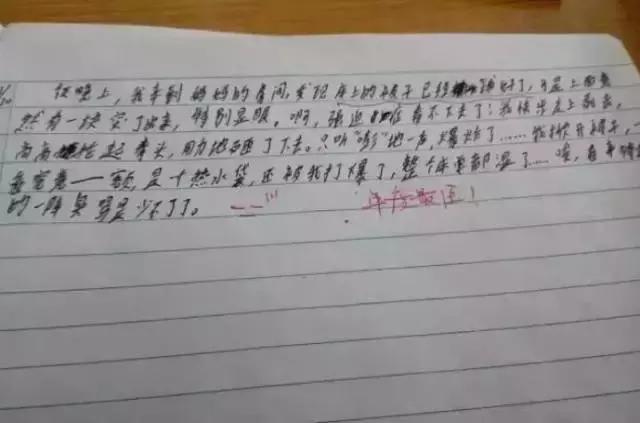 在晚上，我来到妈妈的房间，发现床上的被子已经铺好了，可是上面竟
然有一块突了出来，特别显眼。啊，强迫症看不下去了！我快步走上前去，
高高抡起拳头，用力地砸了下去。只听“嘭”地一声，爆炸了……我掀开被子，一
看竟竟——额，是个热水袋，还被我打爆了，整个床都湿了……唉，看来
的一阵臭骂是少不了了。
年度最强！